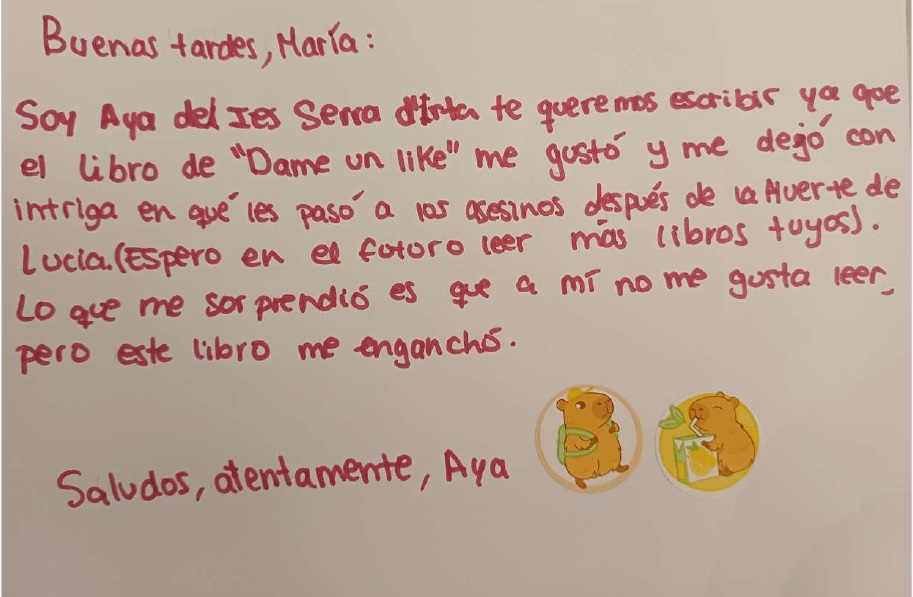 Buenas tardes, María:
Soy Aya del Ies Serra d'Irta te queremos escribir ya que
el libro de "Dame un like" me gustó y me dejó con
intriga en qué les pasó a los asesinos después de la Muerte de
Lucia.(Espero en el futoro leer más libros tuyos).
Lo que me sorprendió es que a mí no me gusta leer,
pero este libro me enganchó.
Saludos, atentamente, Aya